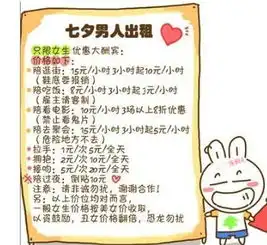 七夕男人出租
只限女生优惠大酬宾:
价格如下:
陪逛街: 15元/小时 3小时起10元/小时
(鞋底要报销)
陪吃饭: 8元/小时 3小时起3元/小时
(雇主请客制)
陪看电影: 10元/小时 3场以上8折优惠
(禁止看鬼片)
陪去聚会: 15元/小时 3小时起5元/小时
(危险地方不去)
拉手: 1元/次 5元/全天
拥抱: 2元/次 10元/全天
接吻: 5元/次 20元/全天
陪过夜: 倒贴10元
注意: 请非诚勿扰, 谢谢合作!
另: 以上价位均对而言,
一般女生价格按美女价收取,
以资鼓励, 丑女价格翻倍, 恐龙勿扰